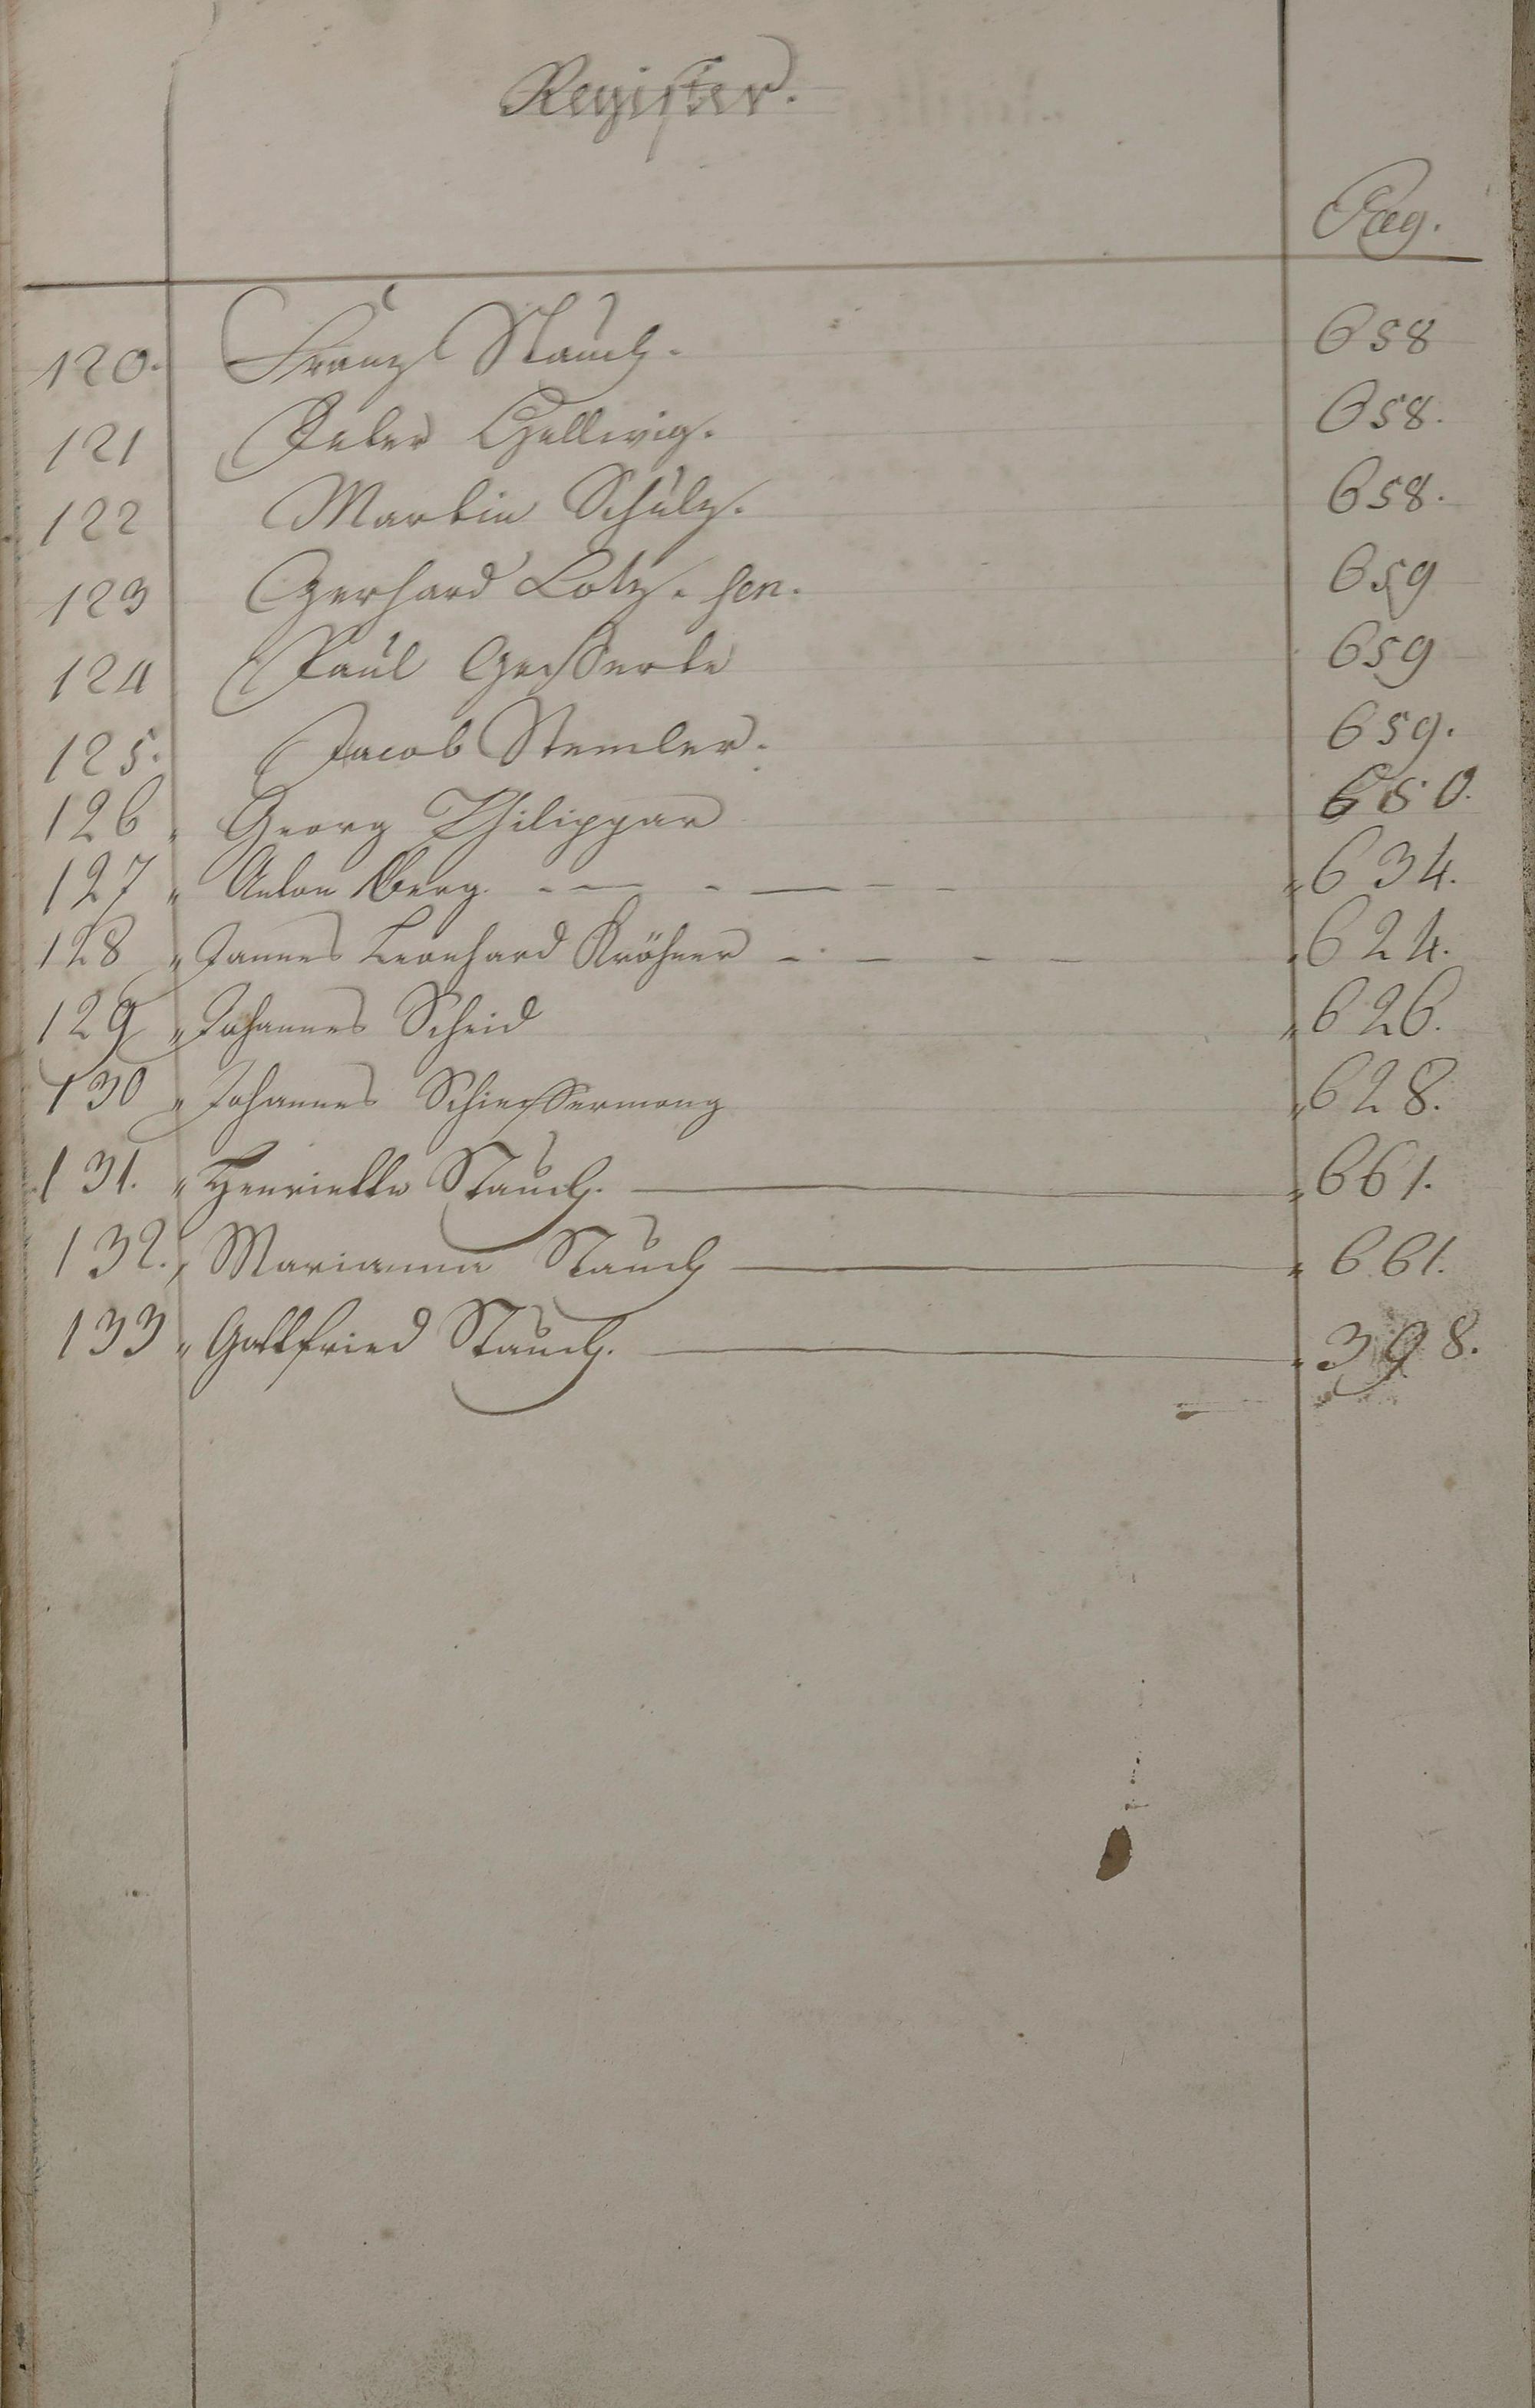 Register.
Pag.
120. Franz Stauch. 658
121 Peter Hellwig. 658.
122 Martin Schulz. 658.
123 Gerhard Lotz. sen. 659
124 Paul 659
125. Jacob Stemler. 659.
126 " Georg Philippar
127 " Anton Berg. - — - — - - " 634.
128 " Jannes Leonhard Kröhner - - - - " 624.
129 " Johannes Scheid " 626.
130 " Johannes Schiessermang " 628.
131. " Henriette Stauch. — " 661.
132. " Marianna Stauch — " 661.
133 " Gottfried Stauch. — " 398.